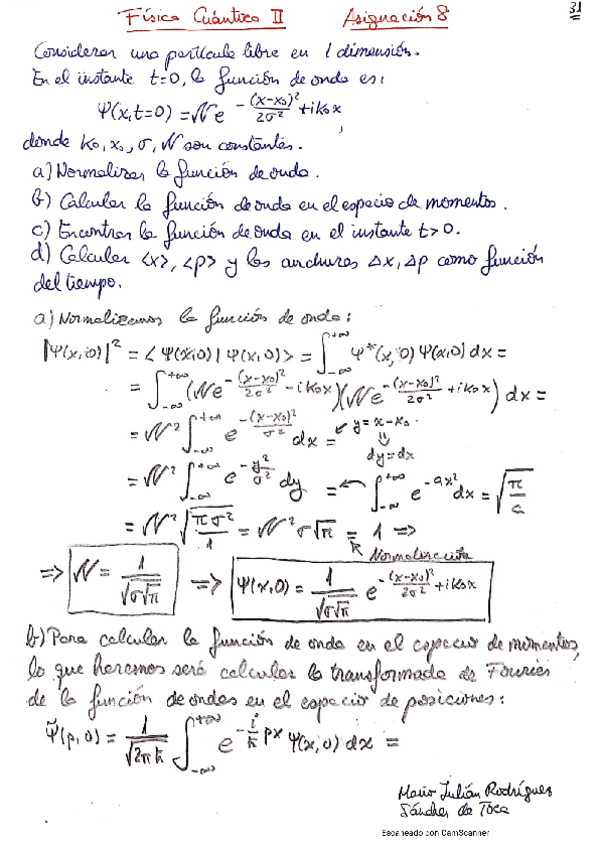 31
Física Cuántica II Asignación 8
Considerar una partícula libre en 1 dimensión.
En el instante t=0, la función de onda es:
Ψ(x,t=0) = 𝒩 e^{-(x-x₀)²/2σ² + ik₀x},
donde k₀, x₀, σ, 𝒩 son constantes.
a) Normalizar la función de onda.
b) Calcular la función de onda en el espacio de momentos.
c) Encontrar la función de onda en el instante t>0.
d) Calcular <x>, <p> y las anchuras Δx, Δp como función
del tiempo.
a) Normalizamos la función de onda:
|Ψ(x,0)|² = <Ψ(x,0)|Ψ(x,0)> = ∫_{-∞}^{+∞} Ψ*(x,0)Ψ(x,0) dx =
= ∫_{-∞}^{+∞} (𝒩e^{-(x-x₀)²/2σ² - ik₀x})(𝒩e^{-(x-x₀)²/2σ² + ik₀x}) dx =
= 𝒩² ∫_{-∞}^{+∞} e^{-(x-x₀)²/σ²} dx = ↙ y=x-x₀ ⇓ dy=dx
= 𝒩² ∫_{-∞}^{+∞} e^{-y²/σ²} dy = ← ∫_{-∞}^{+∞} e^{-ax²} dx = √(π/a)
= 𝒩² √(πσ²/1) = 𝒩²σ√π = 1 ⇒
Normalización
⇒ 𝒩 = 1/√(σ√π) ⇒ Ψ(x,0) = 1/√(σ√π) e^{-(x-x₀)²/2σ² + ik₀x}
b) Para calcular la función de onda en el espacio de momentos,
lo que haremos será calcular la transformada de Fourier
de la función de ondas en el espacio de posiciones:
Ψ̃(p,0) = 1/√(2πħ) ∫_{-∞}^{+∞} e^{-(i/ħ)px} Ψ(x,0) dx =
Mario Julián Rodríguez
Sánchez de Toca
Escaneado con CamScanner